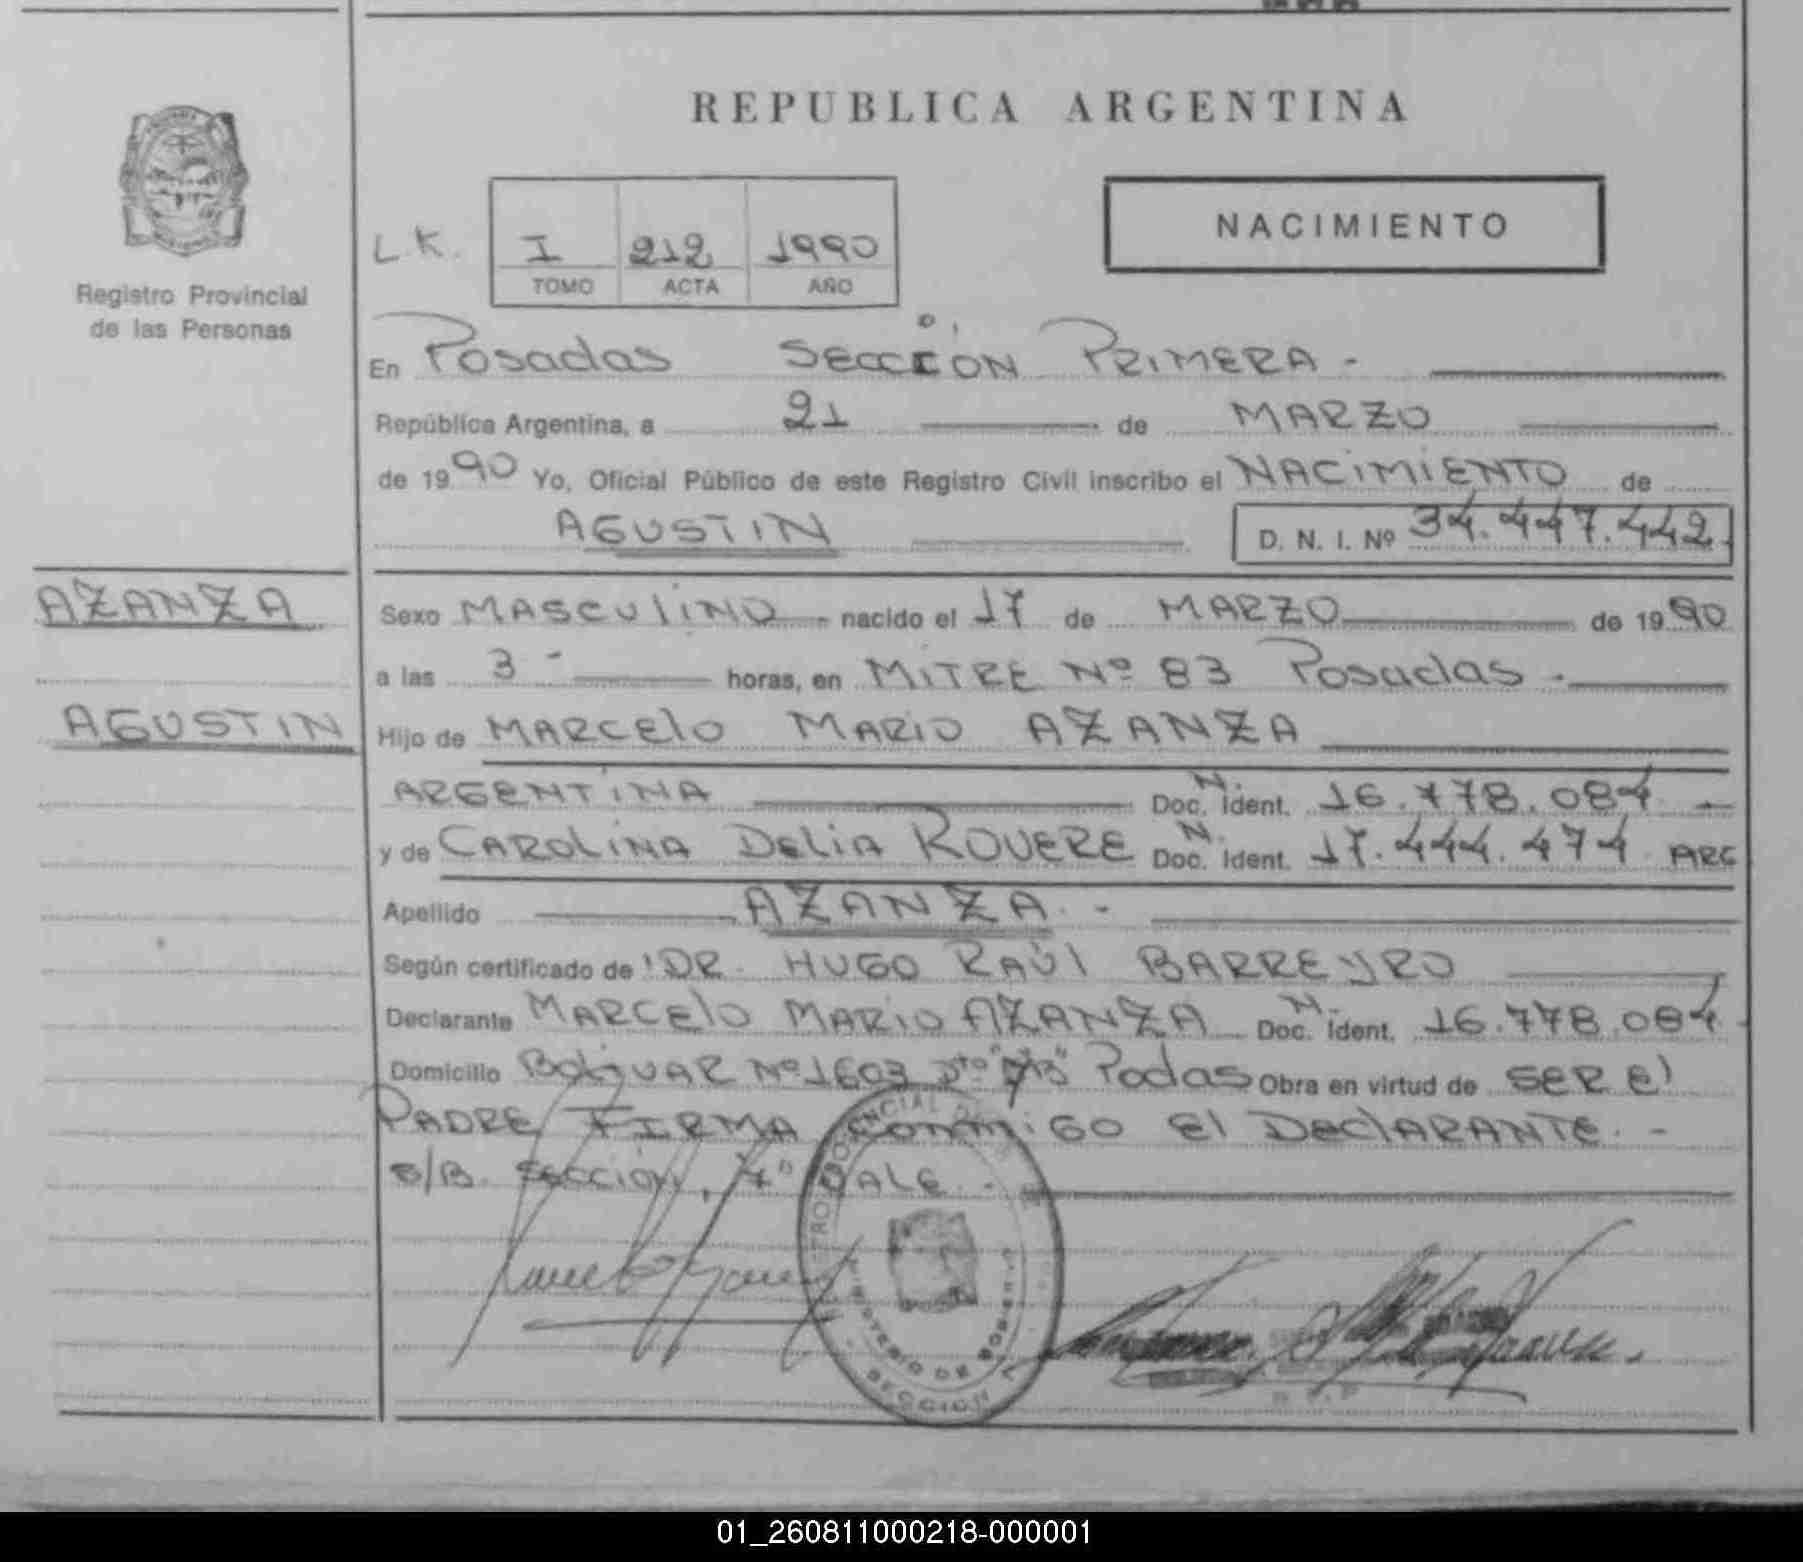 REPUBLICA ARGENTINA
NACIMIENTO
L.K. I 212 1990
TOMO ACTA AÑO
Registro Provincial
de las Personas
En Posadas SECCION PRIMERA -
República Argentina, a 21 de MARZO
de 1990 Yo, Oficial Público de este Registro Civil inscribo el NACIMIENTO de
AGUSTIN D. N. I. Nº 34.447.442.
AZANZA
AGUSTIN
Sexo MASCULINO nacido el 17 de MARZO de 1990
a las 3 - horas, en MITRE Nº 83 Posadas -
Hijo de MARCELO MARIO AZANZA
ARGENTINA N. Doc. Ident. 16.778.084 -
y de CAROLINA DELIA ROVERE N. Doc. Ident. 17.444.474 ARG
Apellido AZANZA. -
Según certificado de DR. HUGO RAÚL BARREYRO
Declarante MARCELO MARIO AZANZA N. Doc. Ident. 16.778.084
Domicilio BOLIVAR Nº 1603 Posadas Obra en virtud de SER El
PADRE FIRMA CONMIGO El DEClARANTE. -
S/B. SECCIÓN, 7º VALE. -
MINISTERIO DE GOBIERNO
SECCION
01_260811000218-000001